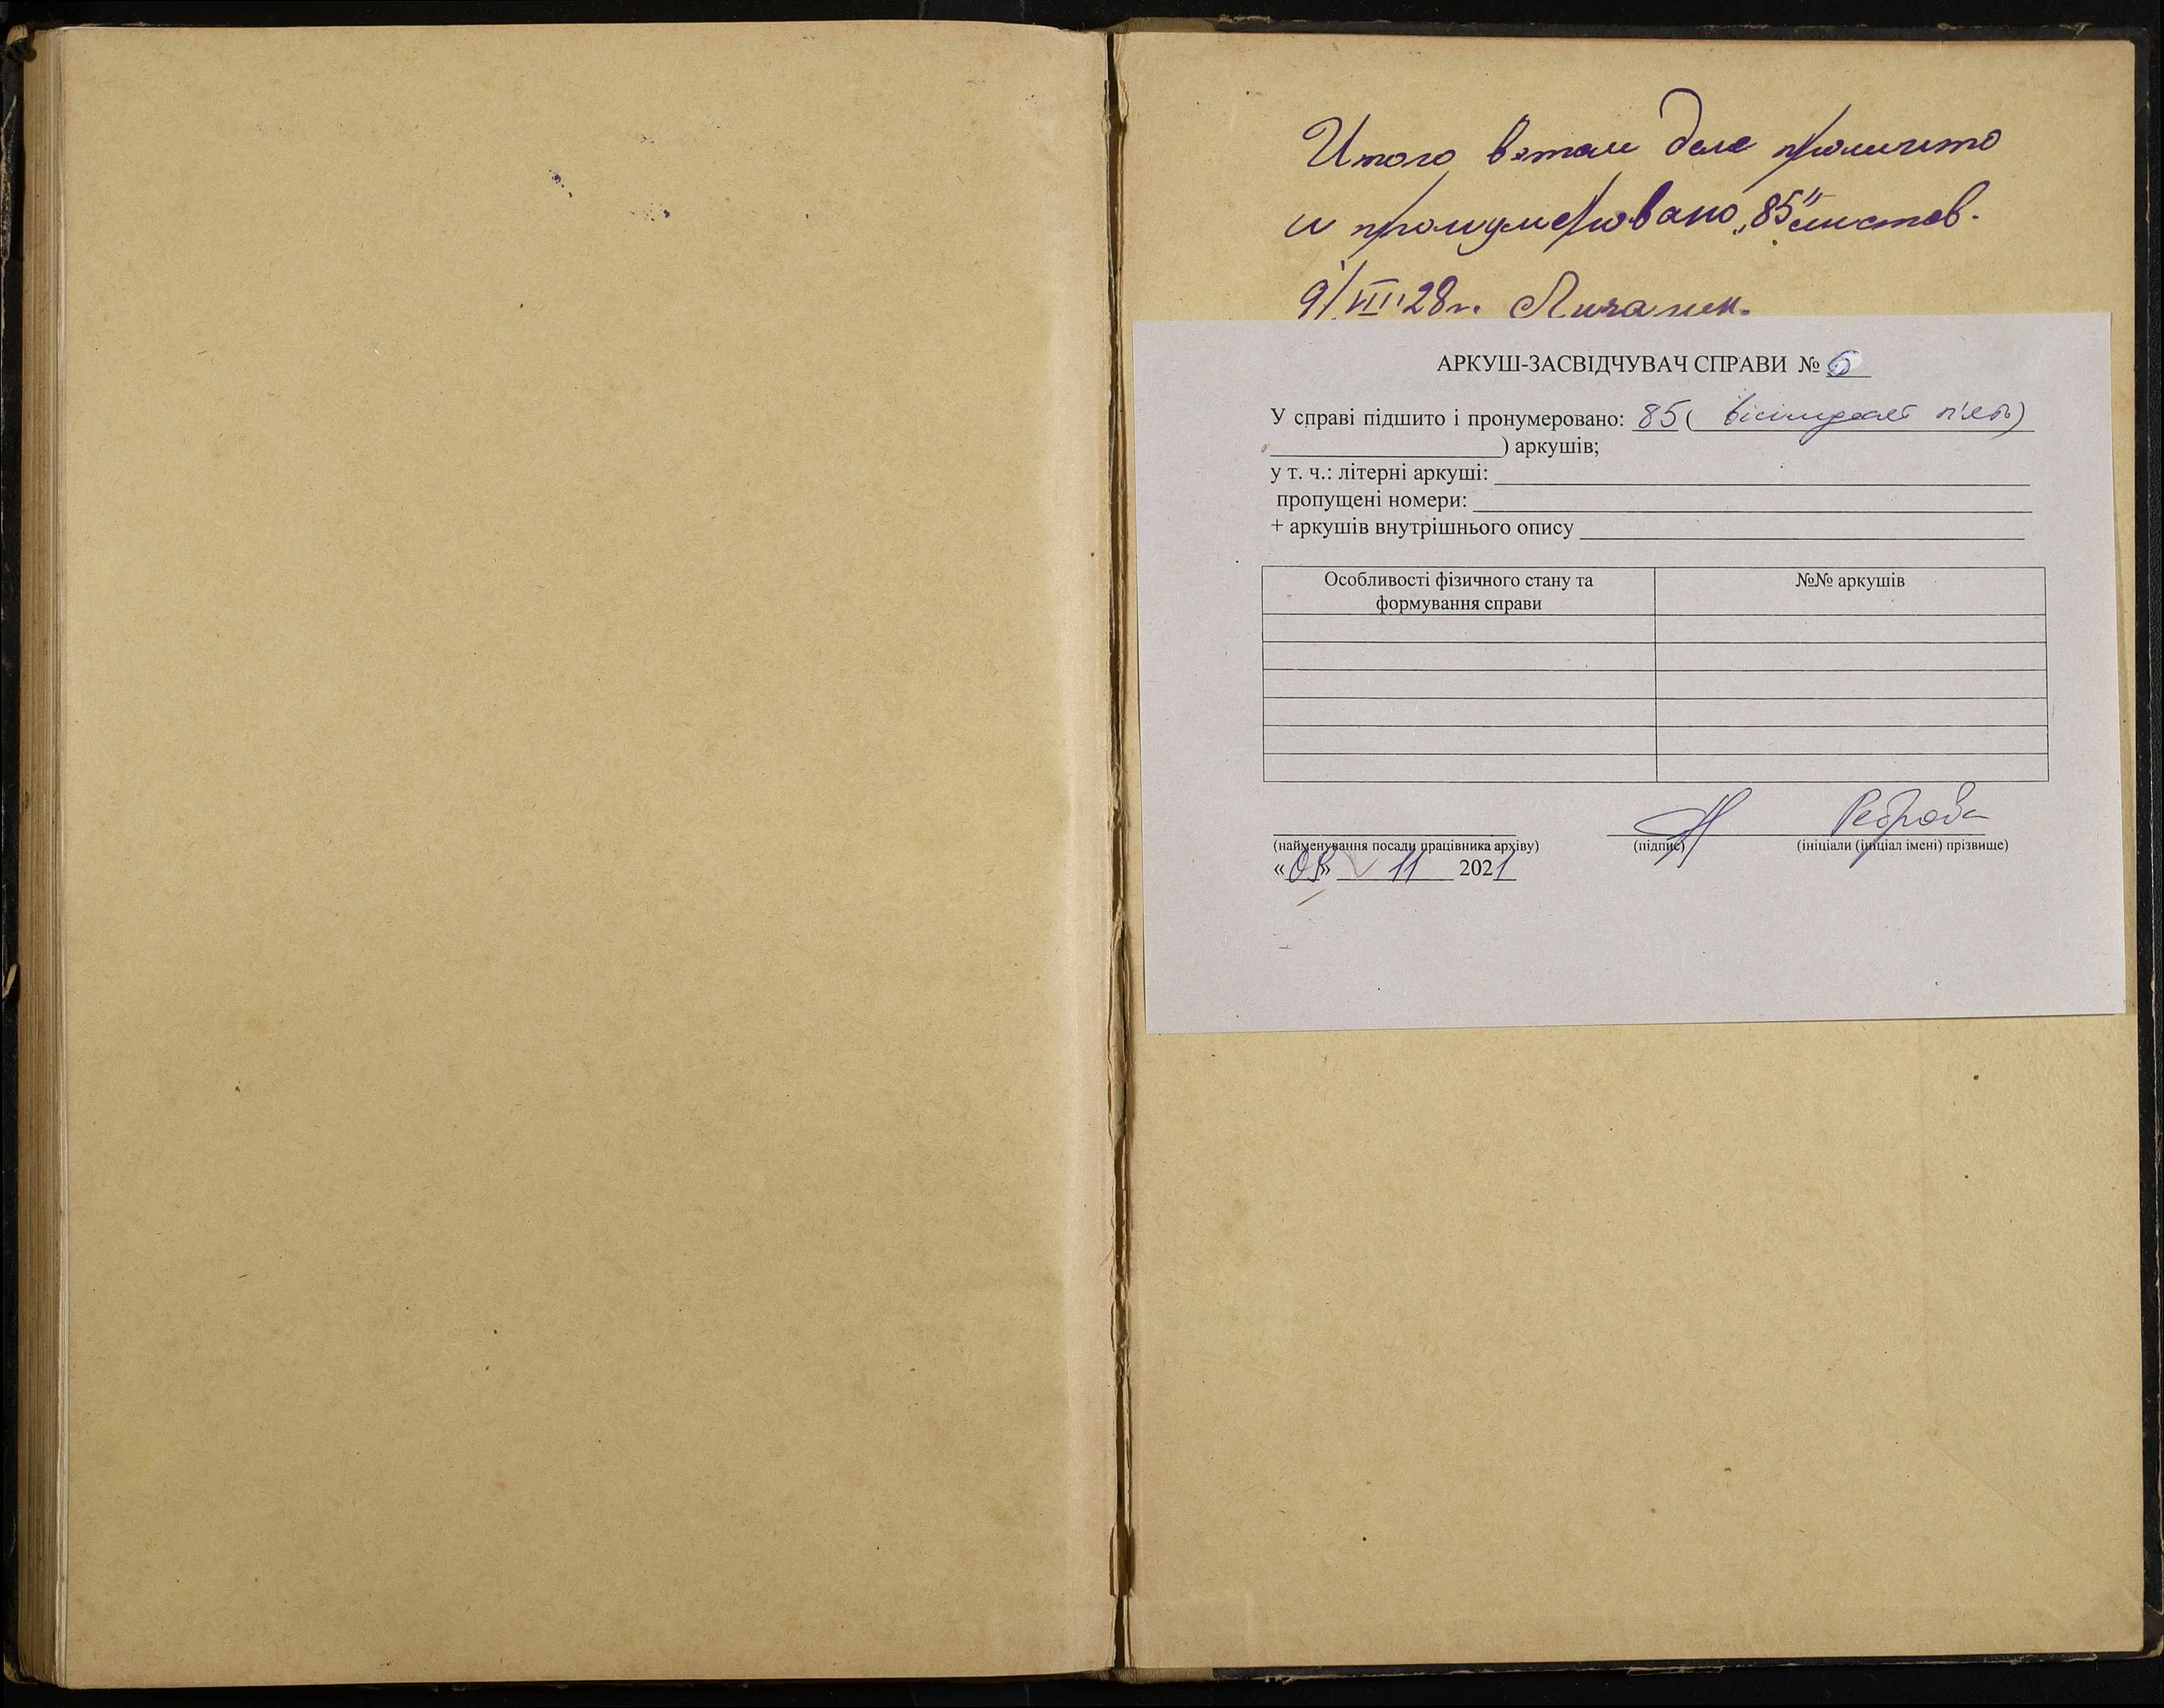 Итого в этом деле прошито
и пронумеровано „85" листов.
9/VIII 28 г.
АРКУШ-ЗАСВІДЧУВАЧ СПРАВИ № 6
У справі підшито і пронумеровано: 85 ( вісімдесят п'ять)
) аркушів;
у т. ч.: літерні аркуші:
пропущені номери:
+ аркушів внутрішнього опису
Особливості фізичного стану та
формування справи
№№ аркушів
Реброва
(найменування посади працівника архіву) (підпис) (ініціали (ініціал імені) прізвище)
«09» 11 2021